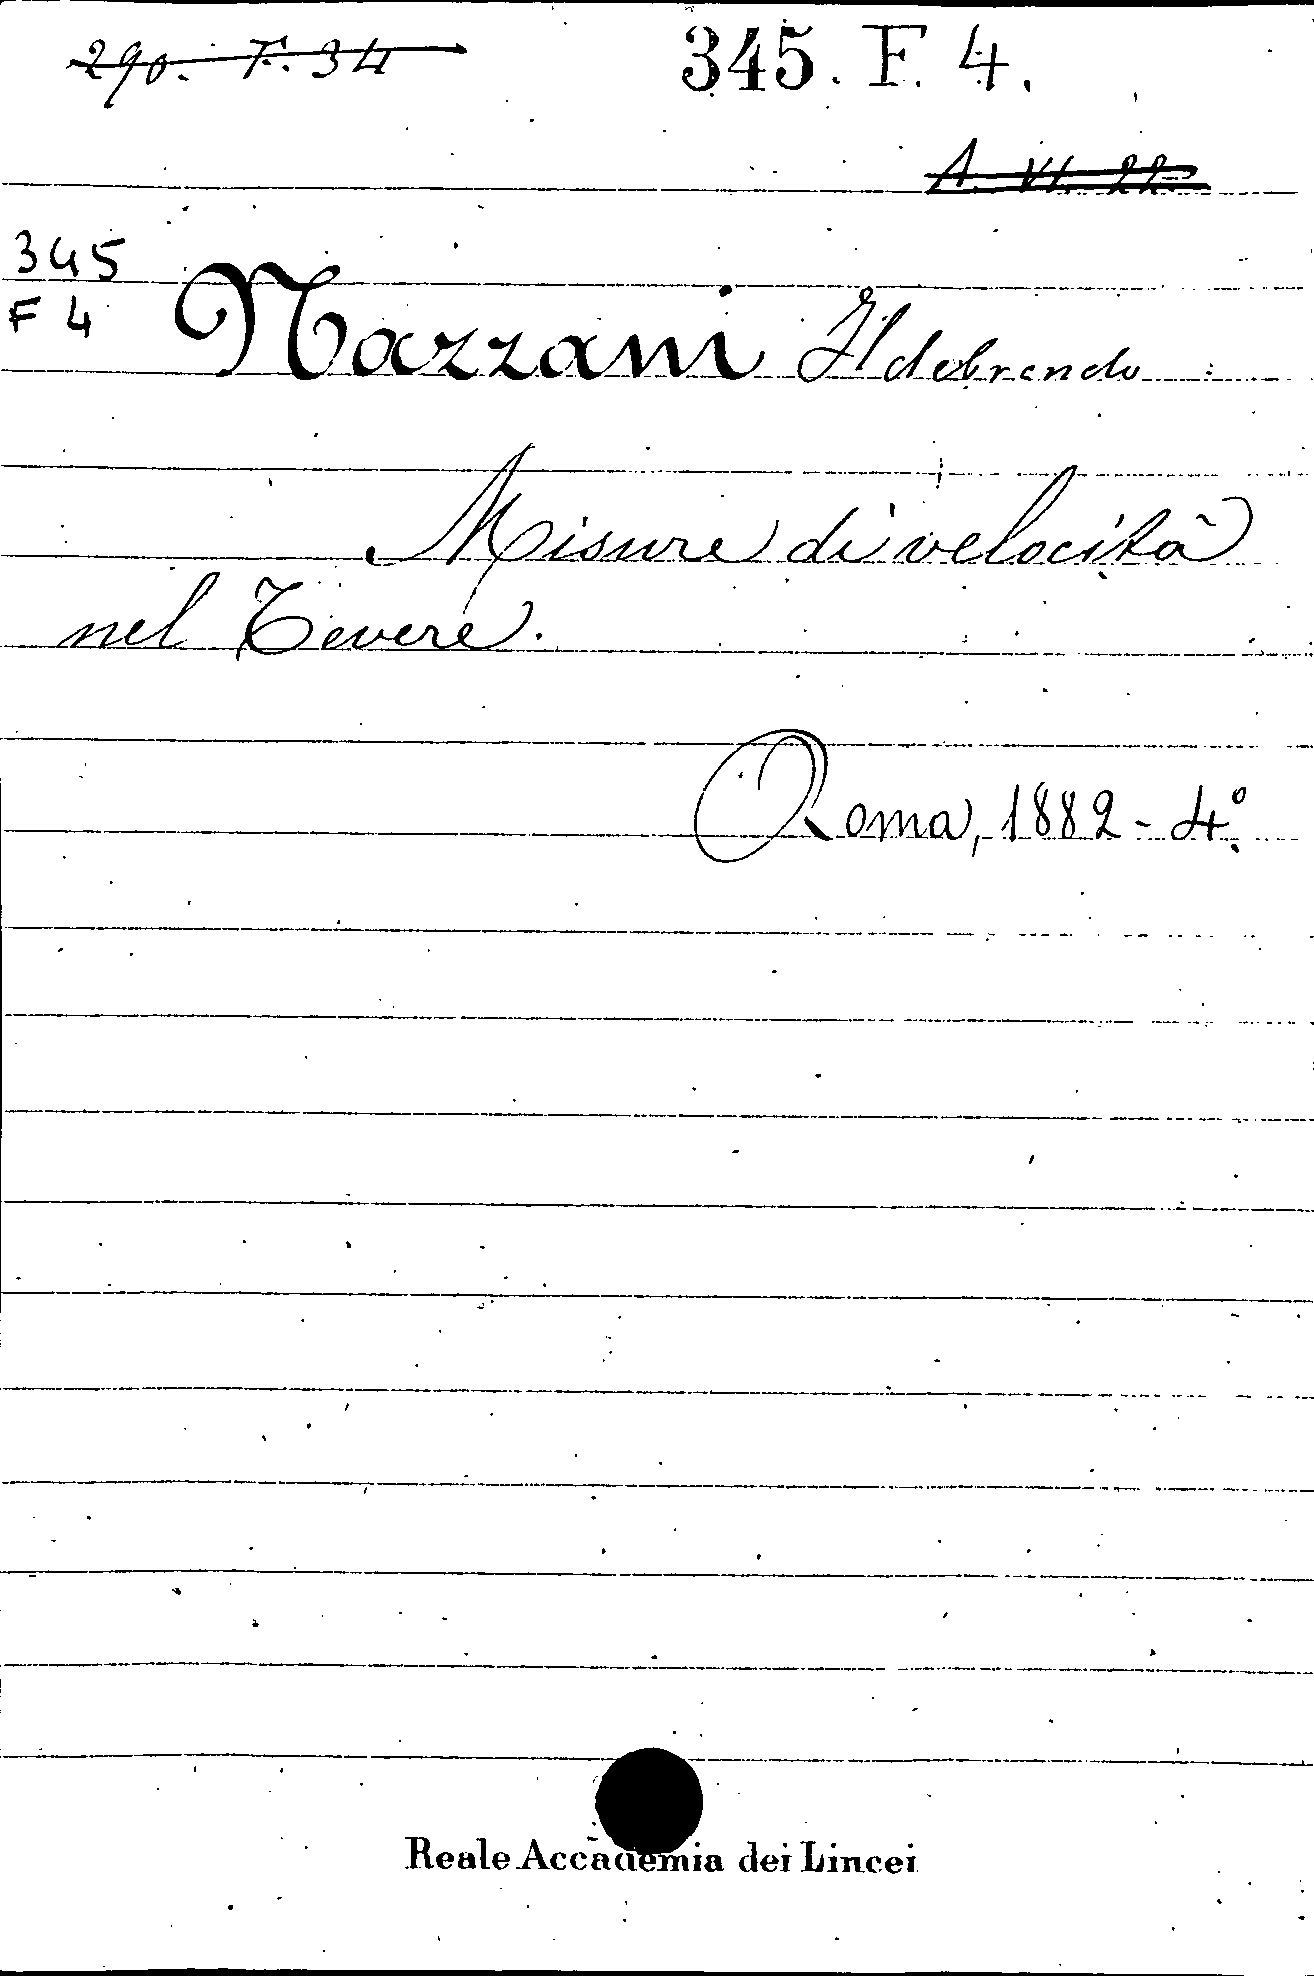 290. F. 34
345. F. 4.
A. VI. 22.
345
F 4
Nazzani Ildebrando
Misure di velocità
nel Tevere.
Roma, 1882 - 4.º
Reale Accademia dei Lincei